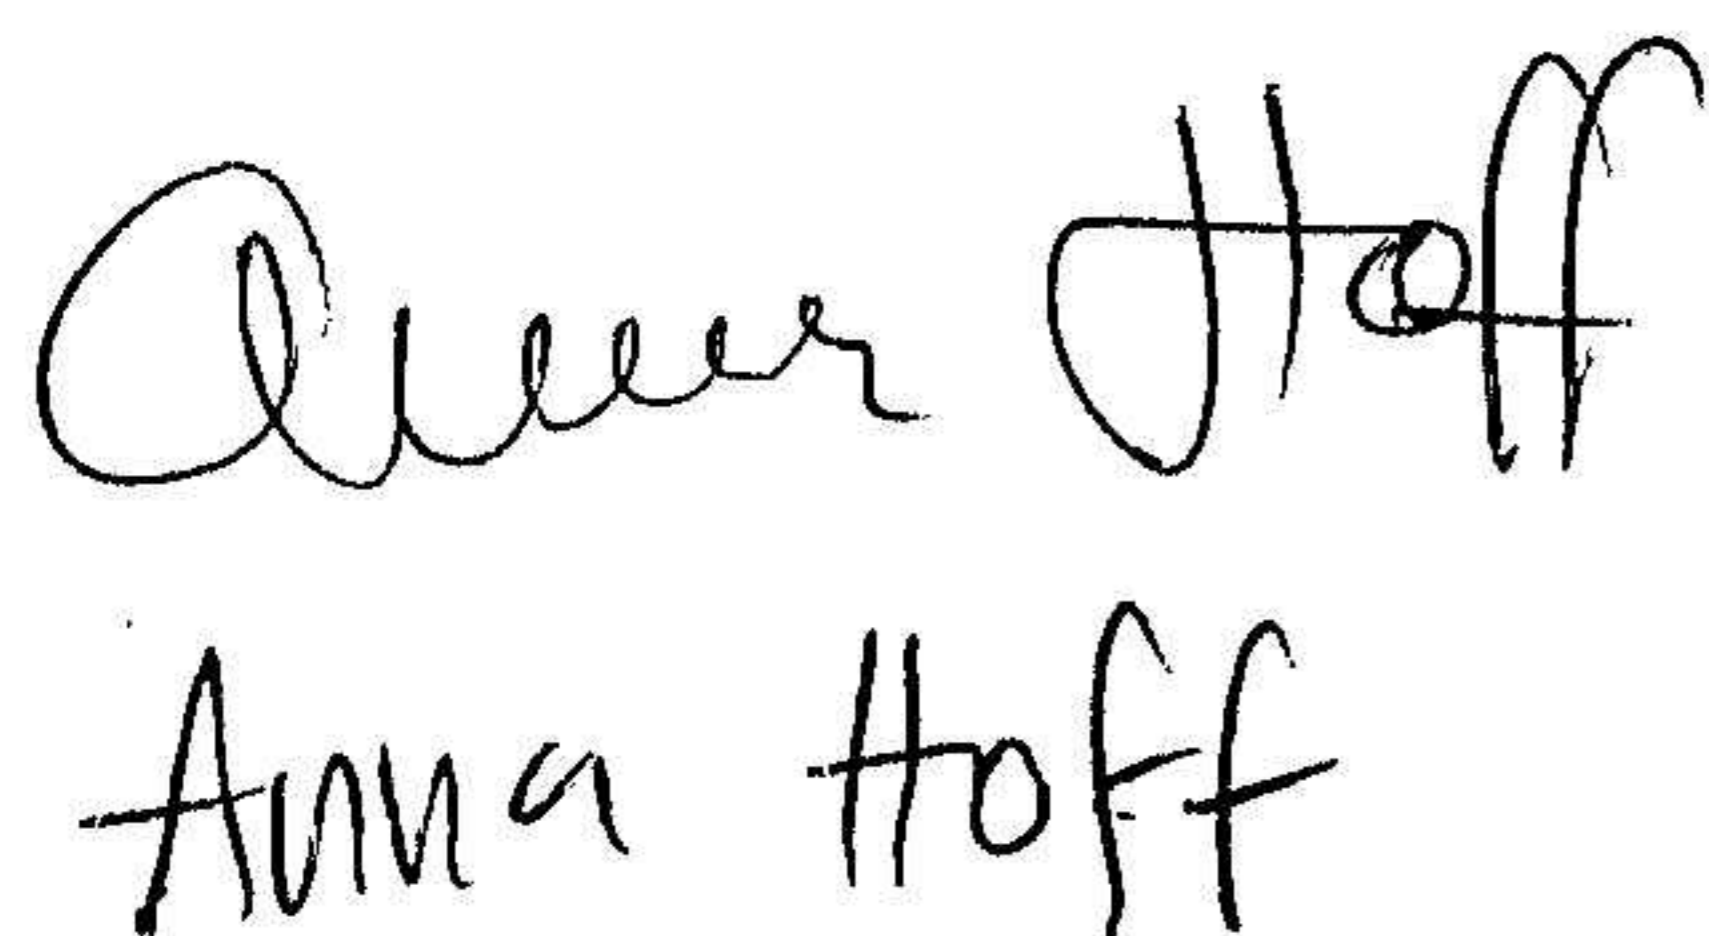 Anna Hoff
Anna Hoff